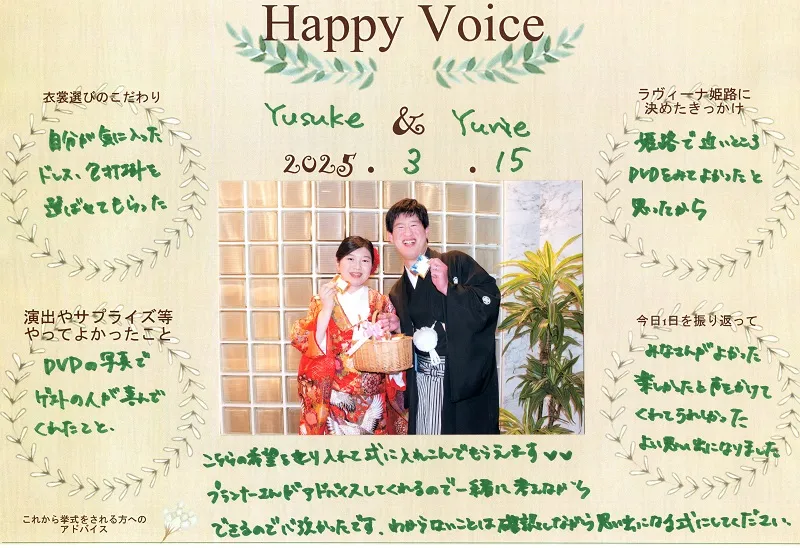 Happy Voice
Yusuke & Yurie
2025.3.15
衣裳選びのこだわり
自分が気に入った
ドレス、色打掛を
選ばせてもらった
ラヴィーナ姫路に
決めたきっかけ
姫路で近いところ
DVDをみてよかったと
思ったから
演出やサプライズ等
やってよかったこと
DVDの写真で
ゲストの人が喜んで
くれたこと、
今日1日を振り返って
みなさんがよかった
楽しかったと声をかけて
くれてうれしかった
よい思い出になりました
こちらの希望を取り入れて式に入れこんでもらえます♡♡
プランナーさんがアドバイスしてくれるので一緒に考えながら
できるので心強かたです、わからないことは確認しながら思い出になる式にしてください、
これから挙式をされる方への
アドバイス